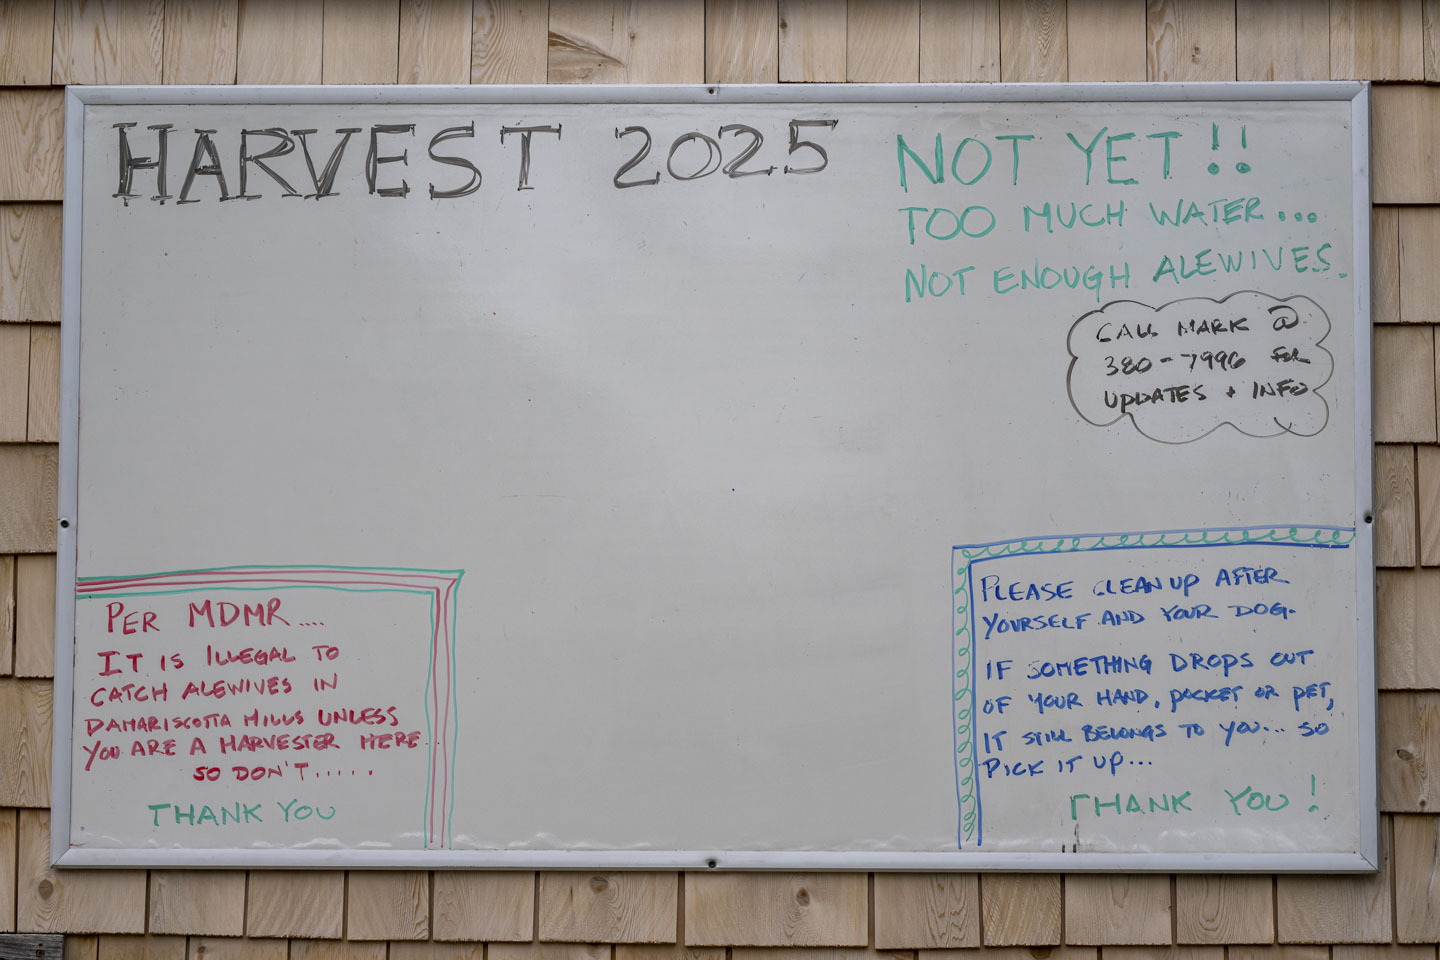 HARVEST 2025
NOT YET!!
TOO MUCH WATER...
NOT ENOUGH ALEWIVES.
CALL MARK @
380-7996 FOR
UPDATES + INFO
PER MDMR....
IT IS ILLEGAL TO
CATCH ALEWIVES IN
DAMARISCOTTA MILLS UNLESS
YOU ARE A HARVESTER HERE
SO DON'T.....
THANK YOU
PLEASE CLEAN UP AFTER
YOURSELF AND YOUR DOG.
IF SOMETHING DROPS OUT
OF YOUR HAND, POCKET OR PET,
IT STILL BELONGS TO YOU... SO
PICK IT UP...
THANK YOU!